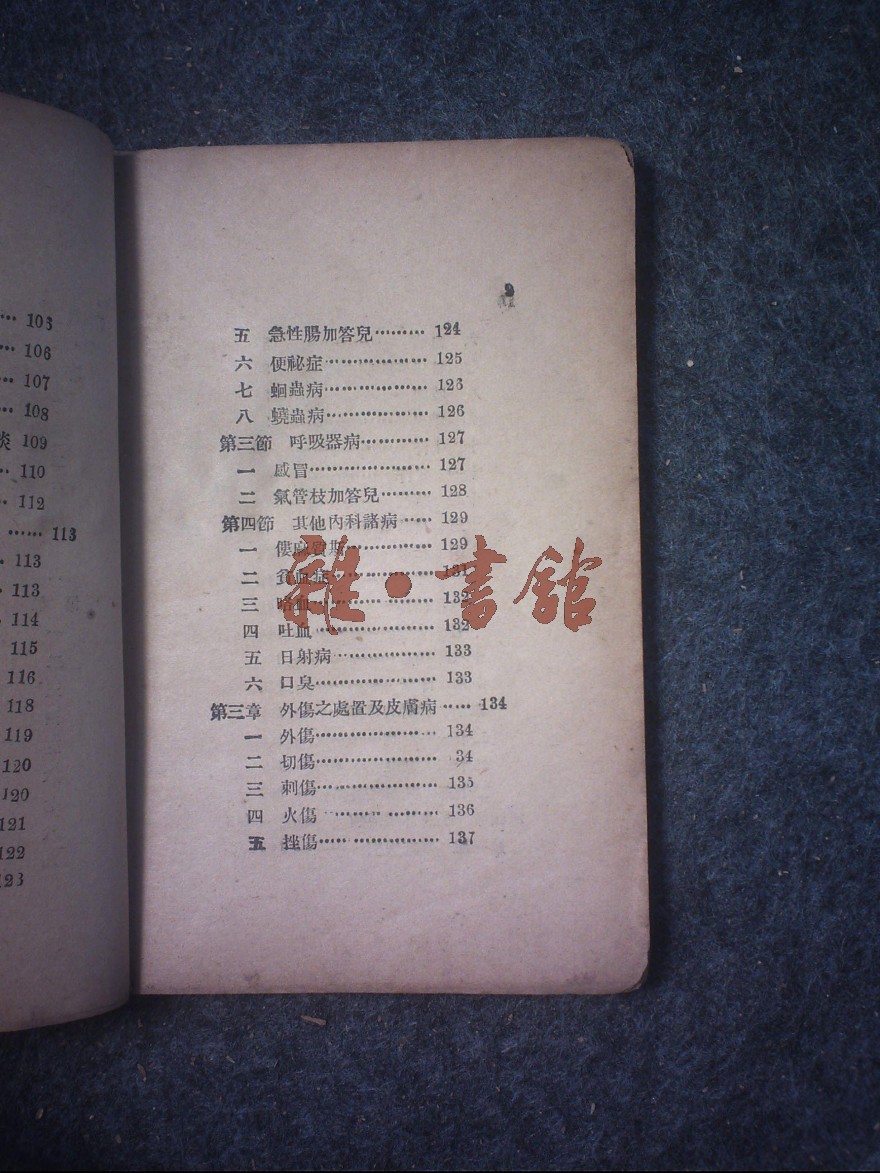 103
106
107
108
109
110
112
113
113
113
114
115
116
118
119
120
120
121
122
123
9
五 急性腸加答兒········· 124
六 便祕症·················· 125
七 蛔蟲病·················· 126
八 蟯蟲病·················· 126
第三節 呼吸器病············ 127
一 感冒····················· 127
二 氣管枝加答兒········· 128
第四節 其他內科諸病······ 129
一 僂麻質斯··············· 129
二 貧血症·················· 131
三 咯血····················· 132
四 吐血····················· 132
五 日射病·················· 133
六 口臭····················· 133
第三章 外傷之處置及皮膚病····· 134
一 外傷····················· 134
二 切傷····················· 34
三 刺傷····················· 135
四 火傷 ··················· 136
五 挫傷····················· 137
雜·書館